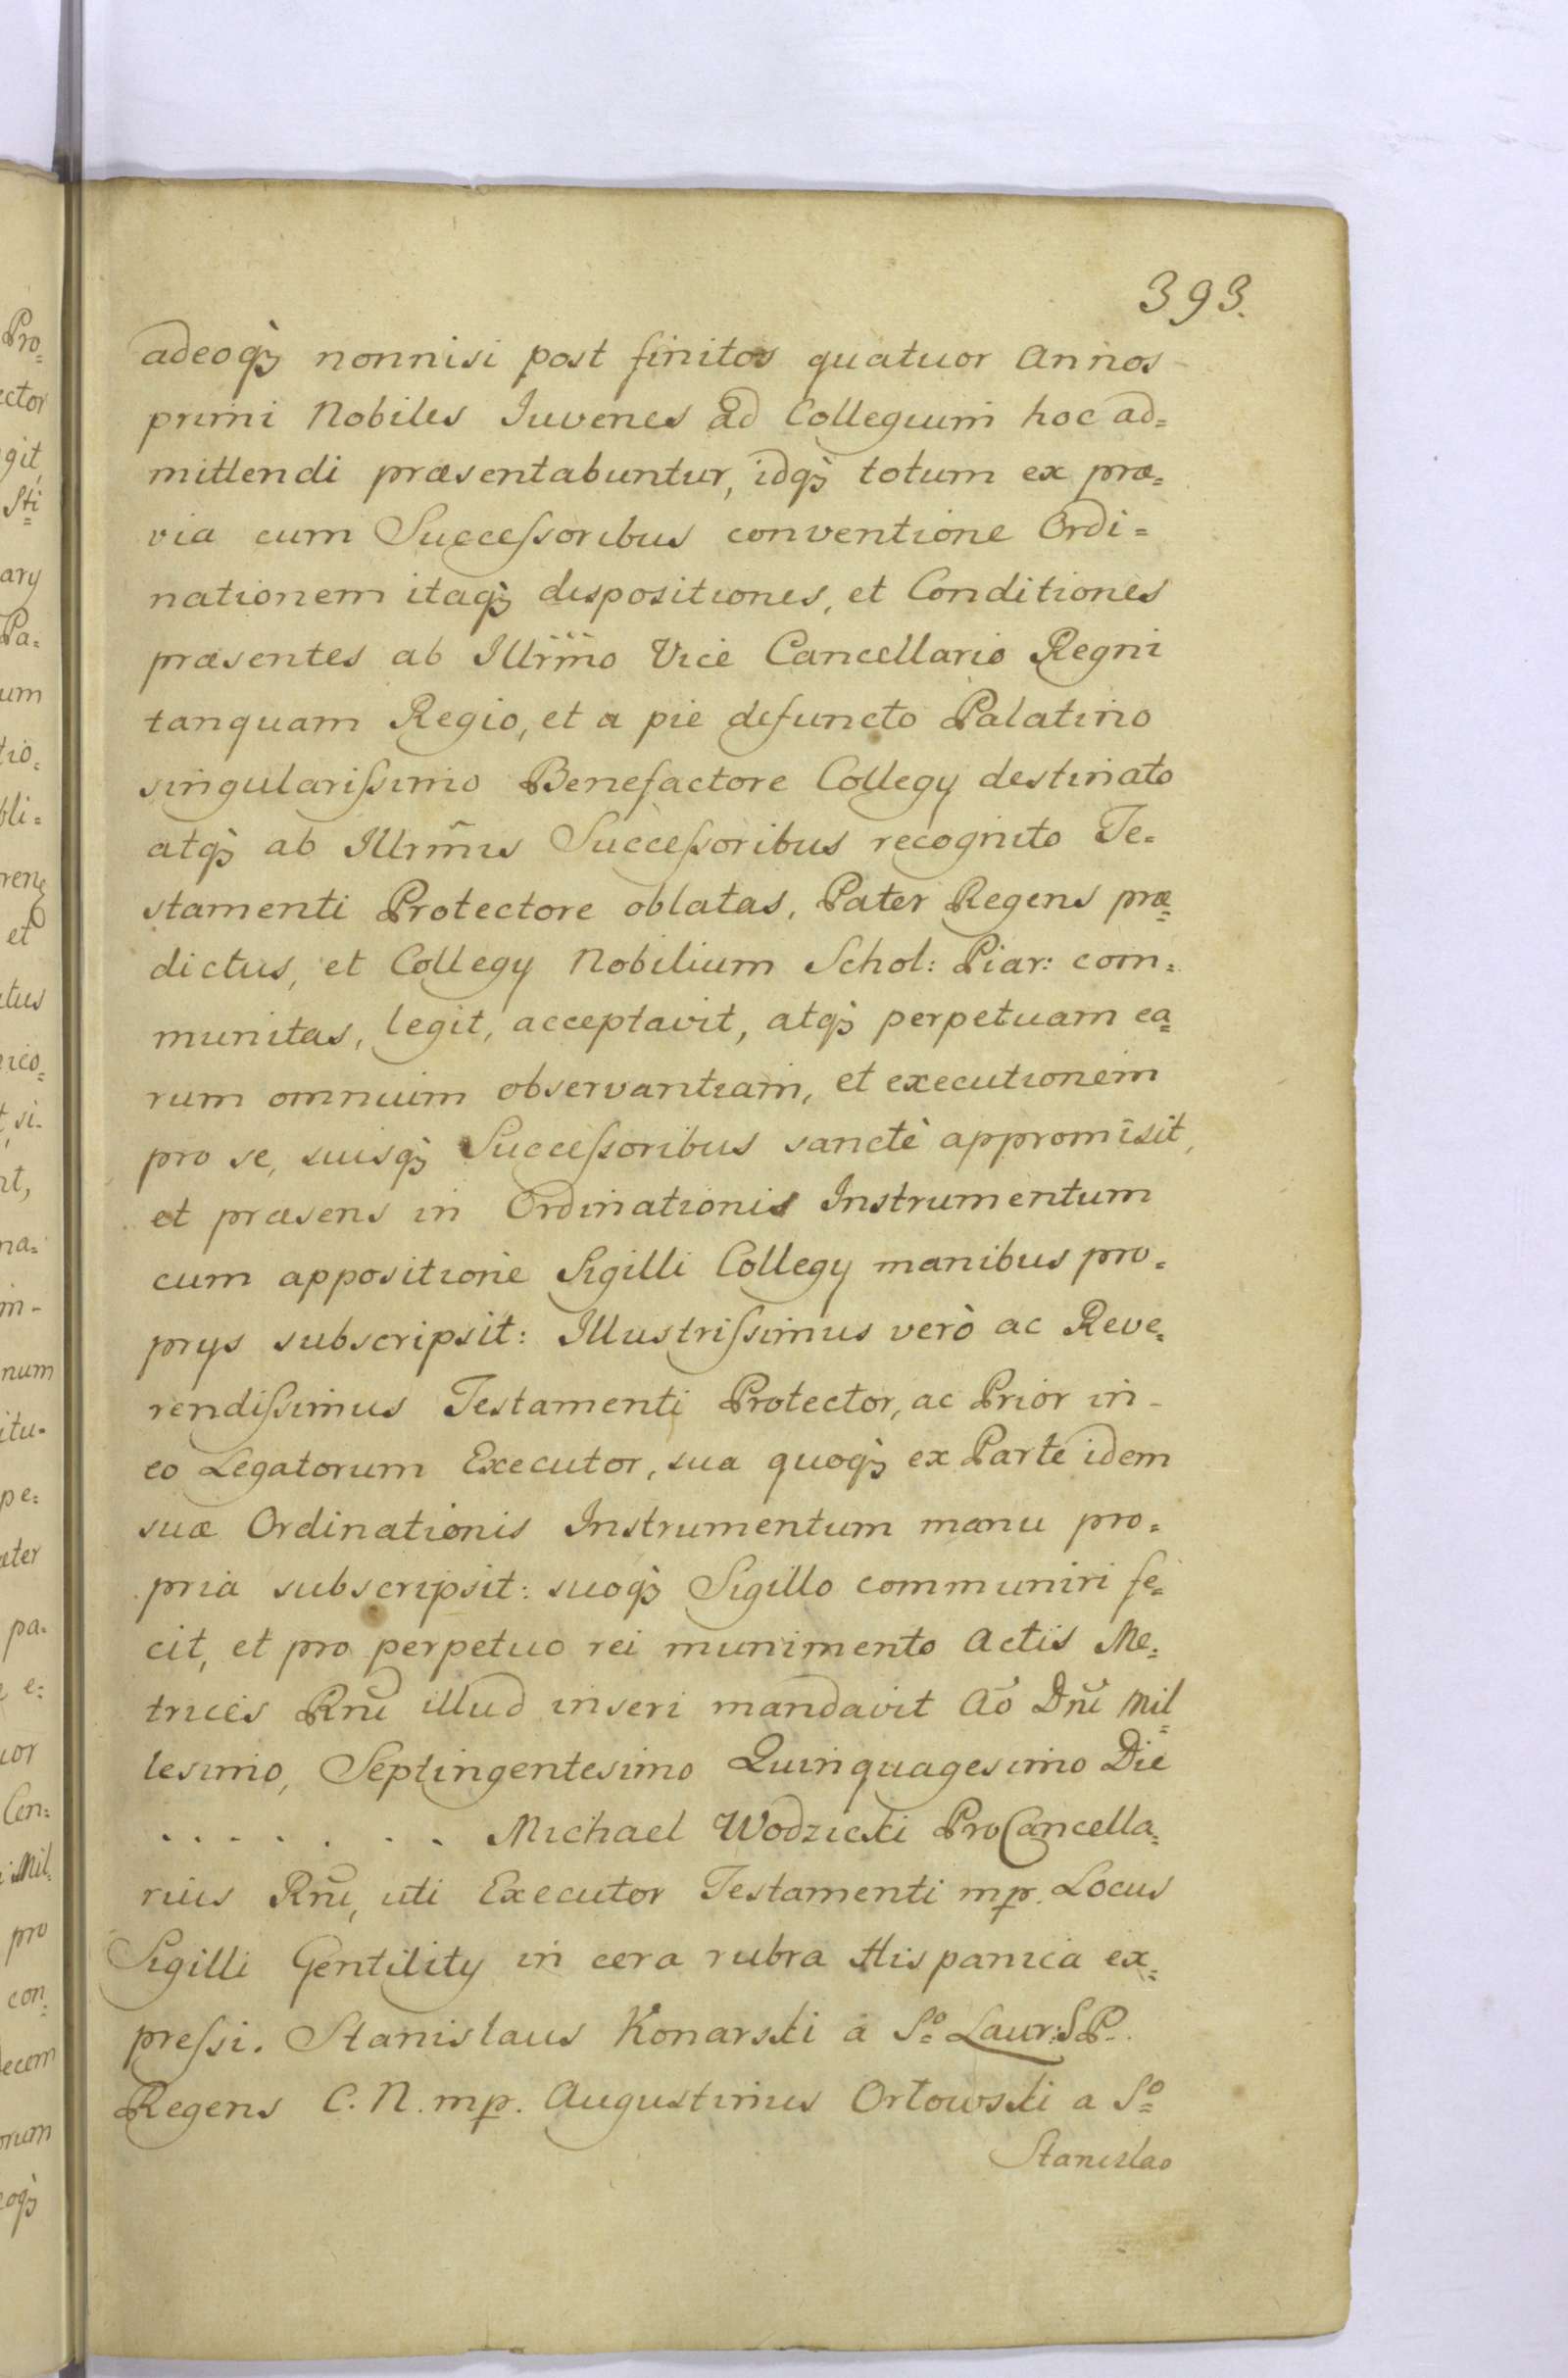 393.
adeoq₃ nonnisi post finitos quatuor Annos
primi Nobiles Iuvenes ad Collegium hoc ad=
mittendi præsentabuntur, idq₃ totum ex præ=
via cum Succeſsoribus conventione Ordi=
nationem itaq₃ dispositiones, et Conditiones
præsentes ab Illrm̃o Vice Cancellario Regni
tanquam Regio, et a pie defuncto Palatino
singulariſsimo Benefactore Collegy destinato
atq₃ ab Illrm̃is Succeſsoribus recognito Te=
stamenti Protectore oblatas, Pater Regens præ=
dictus, et Collegy Nobilium Schol: Piar: com=
munitas, legit, acceptavit, atq₃ perpetuam ea=
rum omnium observantiam, et executionem
pro se, suisq₃ Succeſsoribus sanctè appromisit,
et præsens in Ordinationis Instrumentum
cum appositione Sigilli Collegy manibus pro=
prys subscripsit: Illustriſsimus verò ac Reve=
rendiſsimus Testamenti Protector, ac Prior in-
eo Legatorum Executor, sua quoq₃ ex Parte idem
suæ Ordinationis Instrumentum manu pro=
pria subscripsit: suoq₃ Sigillo communiri fe=
cit, et pro perpetuo rei munimento Actis Me=
trices Rñi illud inseri mandavit Aõ Dñi Mil=
lesimo, Septingentesimo Quinquagesimo Die
. . . . . . . . Michael Wodzicki ProCancella=
rius Rñi, uti Executor Testamenti mp. Locus
Sigilli Gentility in cera rubra Hispanica ex=
preſsi. Stanislaus Konarski à Sº Laur: S.P.
Regens C. N. mp. Augustinus Orłowski a Sº
Stanislao